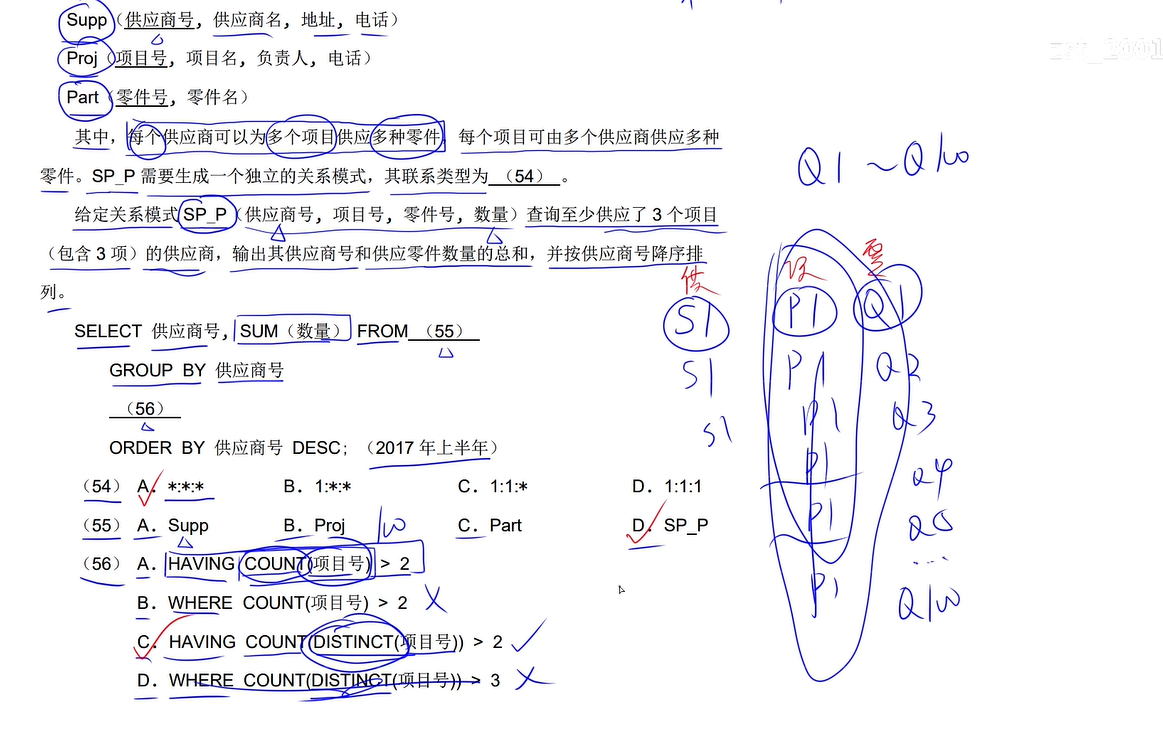 Supp（供应商号，供应商名，地址，电话）
Proj（项目号，项目名，负责人，电话）
Part（零件号，零件名）
其中，每个供应商可以为多个项目供应多种零件，每个项目可由多个供应商供应多种
零件。SP_P 需要生成一个独立的关系模式，其联系类型为（54）。
给定关系模式 SP_P（供应商号，项目号，零件号，数量）查询至少供应了 3 个项目
（包含 3 项）的供应商，输出其供应商号和供应零件数量的总和，并按供应商号降序排
列。
SELECT 供应商号，SUM（数量） FROM （55）
GROUP BY 供应商号
（56）
ORDER BY 供应商号 DESC；（2017 年上半年）
（54） A．*:*:* B．1:*:* C．1:1:* D．1:1:1
（55） A．Supp B．Proj C．Part D．SP_P
（56） A．HAVING COUNT(项目号) > 2
B．WHERE COUNT(项目号) > 2
C．HAVING COUNT(DISTINCT(项目号)) > 2
D．WHERE COUNT(DISTINCT(项目号)) > 3
Q1 ~ Q100
供 零
S1 P1 Q1
S1 P1 Q2
S1 P1 Q3
P1 Q4
P1 Q5
...
P1 Q100
100